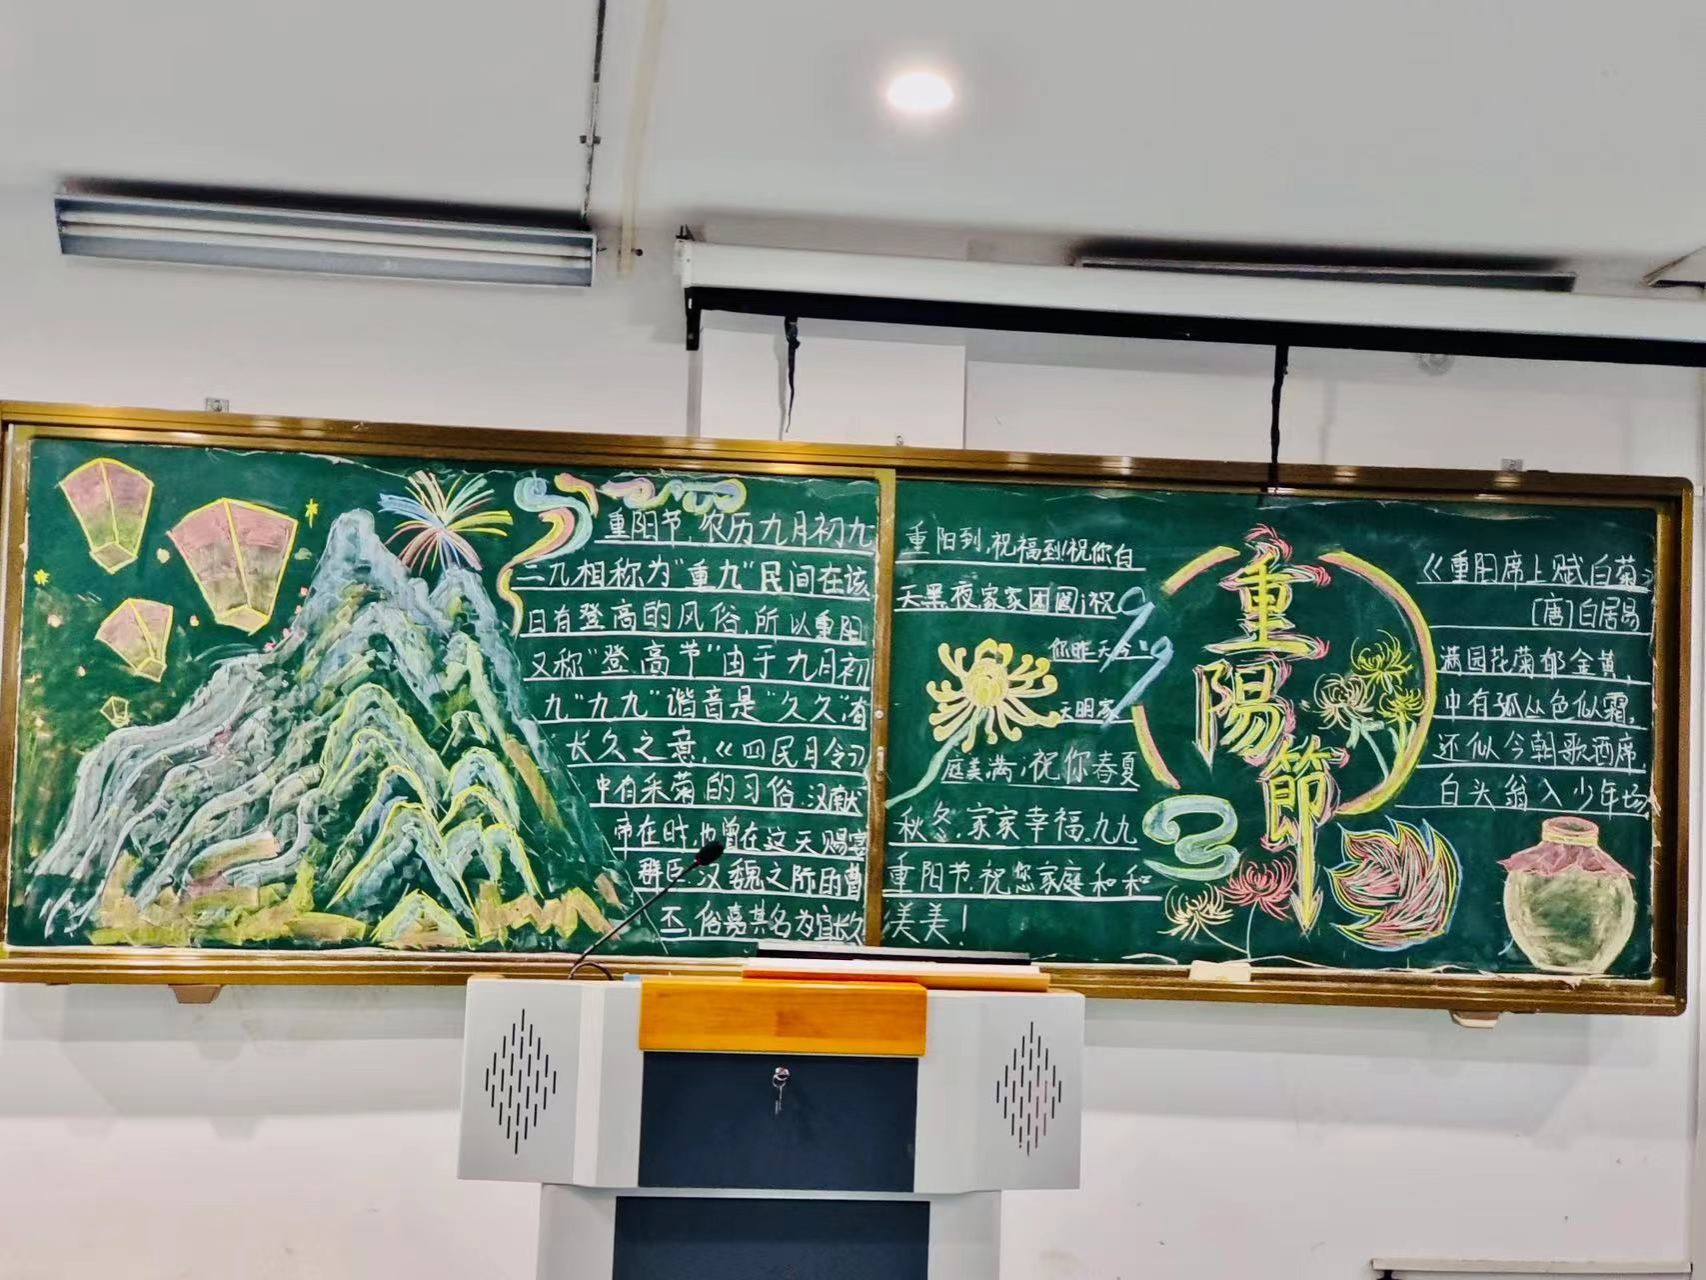 重阳节,农历九月初九
二九相称为"重九"民间在该
日有登高的风俗,所以重阳
又称"登高节"由于九月初
九"九九"谐音是"久久"有
长久之意,《四民月令》
中有采菊的习俗.汉献
帝在时,也曾在这天赐宴
群臣.汉魏之际的曹
丕,俗嘉其名为宜长久
重阳到,祝福到!祝你白
天黑夜家家团圆;祝
您昨天今
天明家
庭美满;祝你春夏
秋冬,家家幸福.九九
重阳节.祝您家庭和和
美美!
99
重陽節
《重阳席上赋白菊》
[唐]白居易
满园花菊郁金黄,
中有孤丛色似霜,
还似今朝歌酒席,
白头翁入少年场.